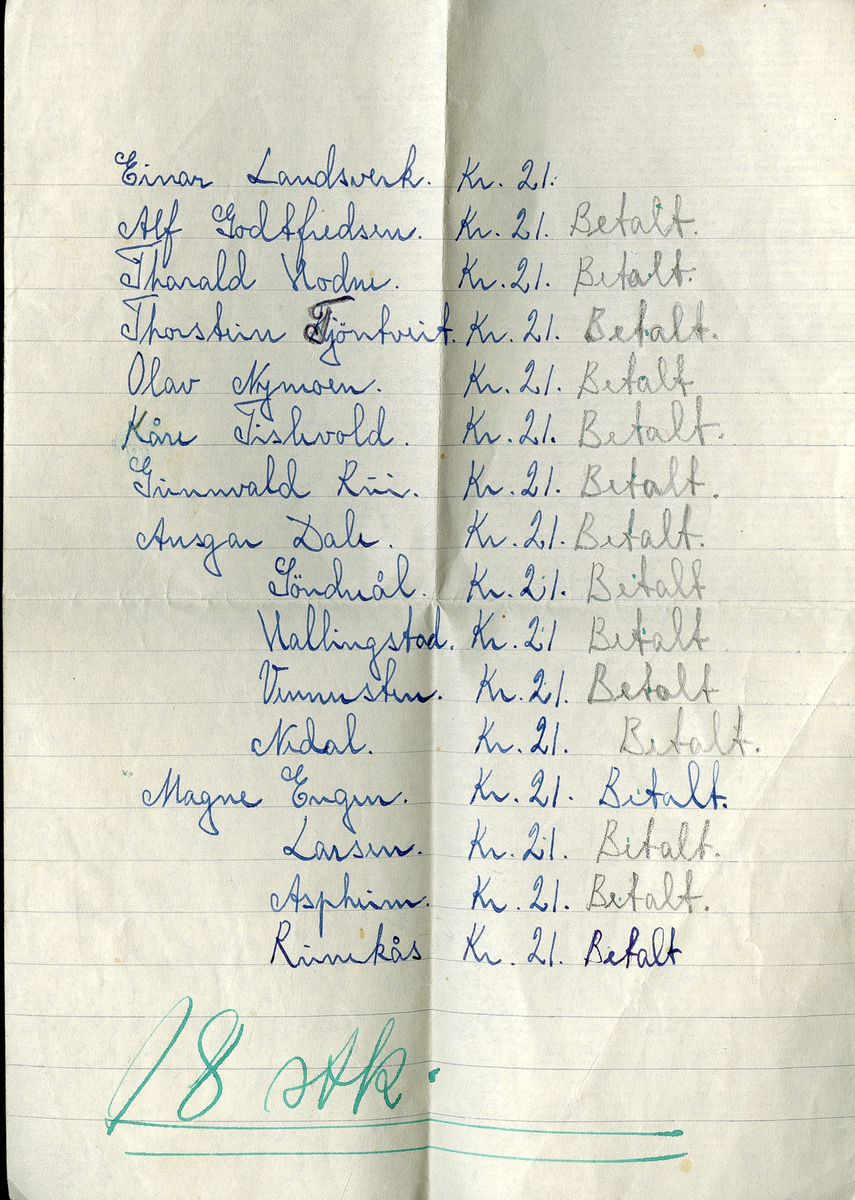 Einar Landsverk. Kr. 21.
Alf Godtfredsen. Kr. 21. Betalt.
Tharald Hodne. Kr. 21. Betalt.
Thorstein Tjöntveit. Kr. 21. Betalt.
Olav Nymoen. Kr. 21. Betalt
Kåre Tislevold. Kr. 21. Betalt.
Gunnvald Rui. Kr. 21. Betalt.
Ansgar Dale. Kr. 21. Betalt.
Kr. 21. Betalt
Hallingstad. Kr. 21 Betalt
Kr. 21. Betalt
Nedal. Kr. 21. Betalt.
Magne Engen. Kr. 21. Betalt.
Larsen. Kr. 21. Betalt.
Aspheim. Kr. 21. Betalt.
Kr. 21. Betalt
18 stk.